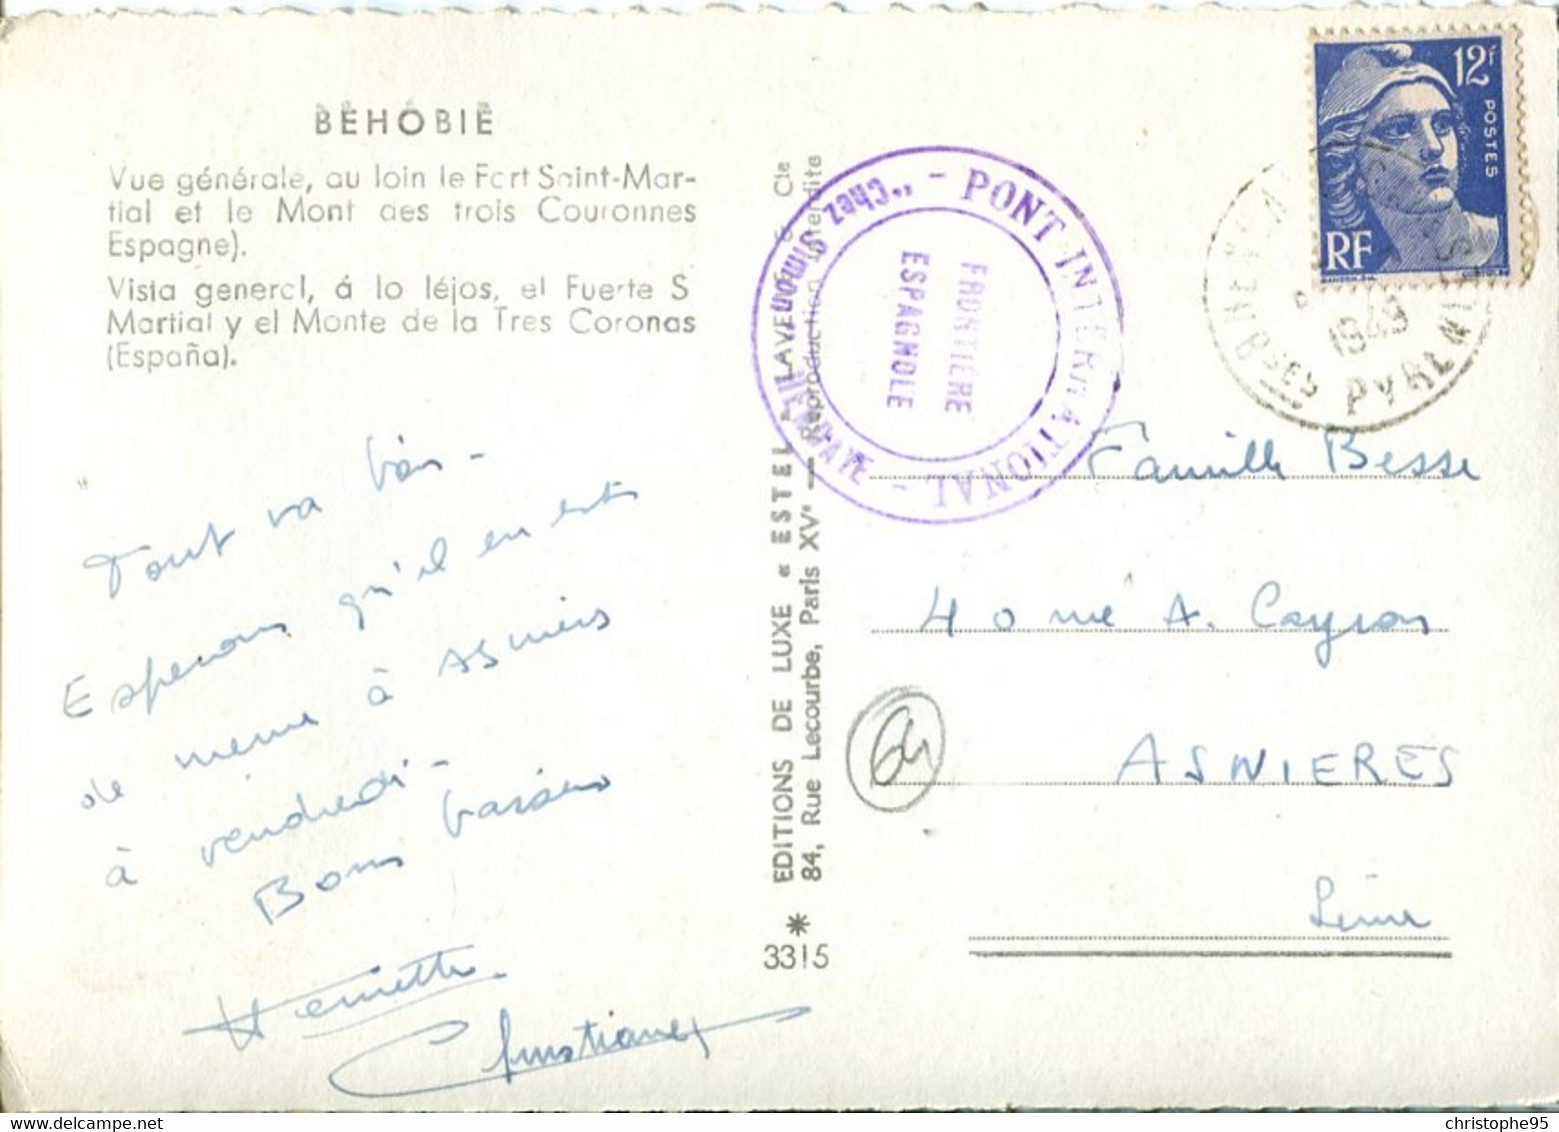 BÉHOBIE
Vue générale, au loin le Fort Saint-Mar-
tial et le Mont des trois Couronnes
Espagne).
Vista general, á lo léjos, el Fuerte S
Martial y el Monte de la Tres Coronas
(España).
Tout va bien -
Esperons qu'il en est
de meme à Asnieres
à vendredi -
Bons baisers
Henriette
Christiane
EDITIONS DE LUXE « ESTEL » LAVELLE & Cie
84, Rue Lecourbe, Paris XVe — Reproduction interdite
*
3315
- PONT INTERNATIONAL -
"Chez Simon" HENDAYE
FRONTIÈRE
ESPAGNOLE
12f
POSTES
RF
1949
BSES PYRENEES
Famille Besse
40 rue A. Cayron
ASNIERES
Seine
64
christophe95